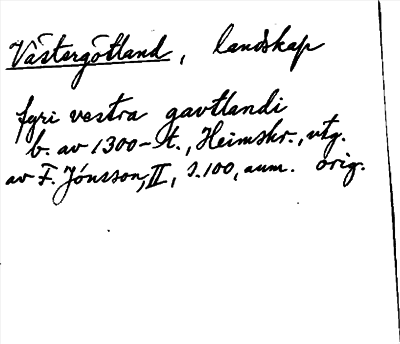 Västergötland, landskap
fyri vestra gavtlandi
b. av 1300-t., Heimskr., utg.
av F. Jónsson, II, s. 100, anm. orig.